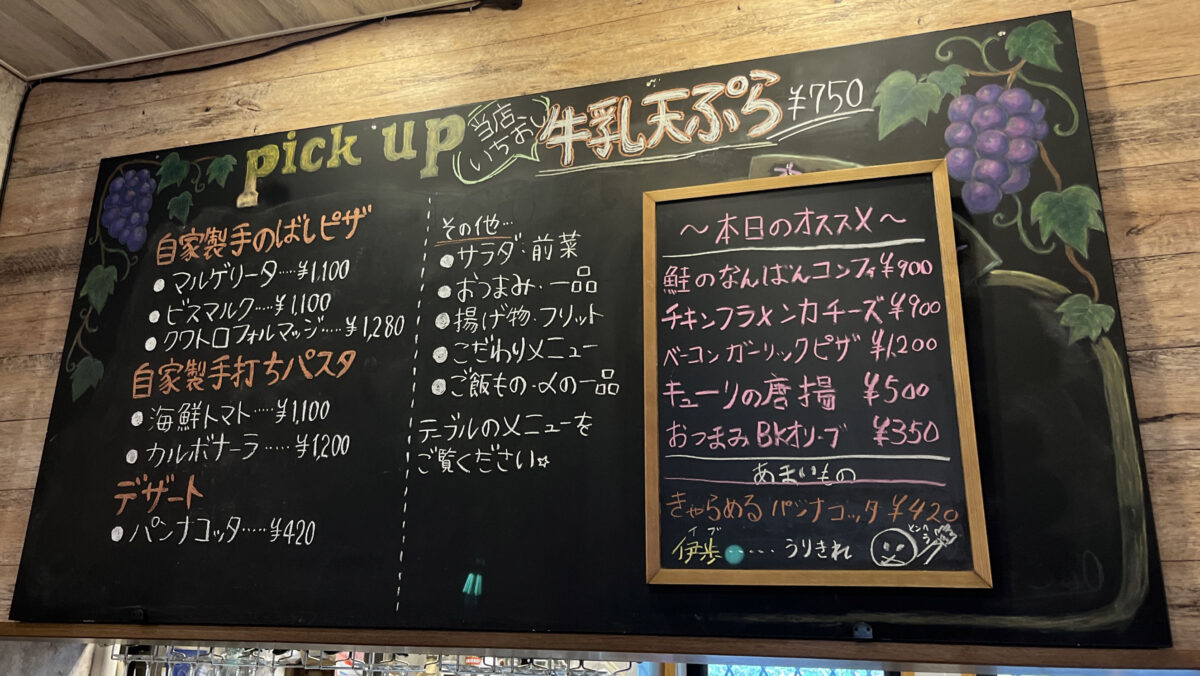 pick up
当店
いちおし
牛乳天ぷら ¥750
自家製手のばしピザ
●マルゲリータ・・・・・¥1,100
●ビスマルク・・・・・¥1,100
●クワトロフォルマッジ・・・・¥1,280
自家製手打ちパスタ
●海鮮トマト・・・・・¥1,100
●カルボナーラ・・・・・¥1,200
デザート
●パンナコッタ・・・・・¥420
その他・・・
●サラダ・前菜
●おつまみ・一品
●揚げ物・フリット
●こだわりメニュー
●ご飯もの・〆の一品
テーブルのメニューを
ご覧ください☆
〜本日のオススメ〜
鮭のなんばんコンフィ ¥900
チキンフラメンカチーズ ¥900
ベーコンガーリックピザ ¥1,200
キューリの唐揚 ¥500
おつまみBKオリーブ ¥350
あまいもの
きゃらめるパンナコッタ ¥420
イブ
伊歩・・・・うりきれ